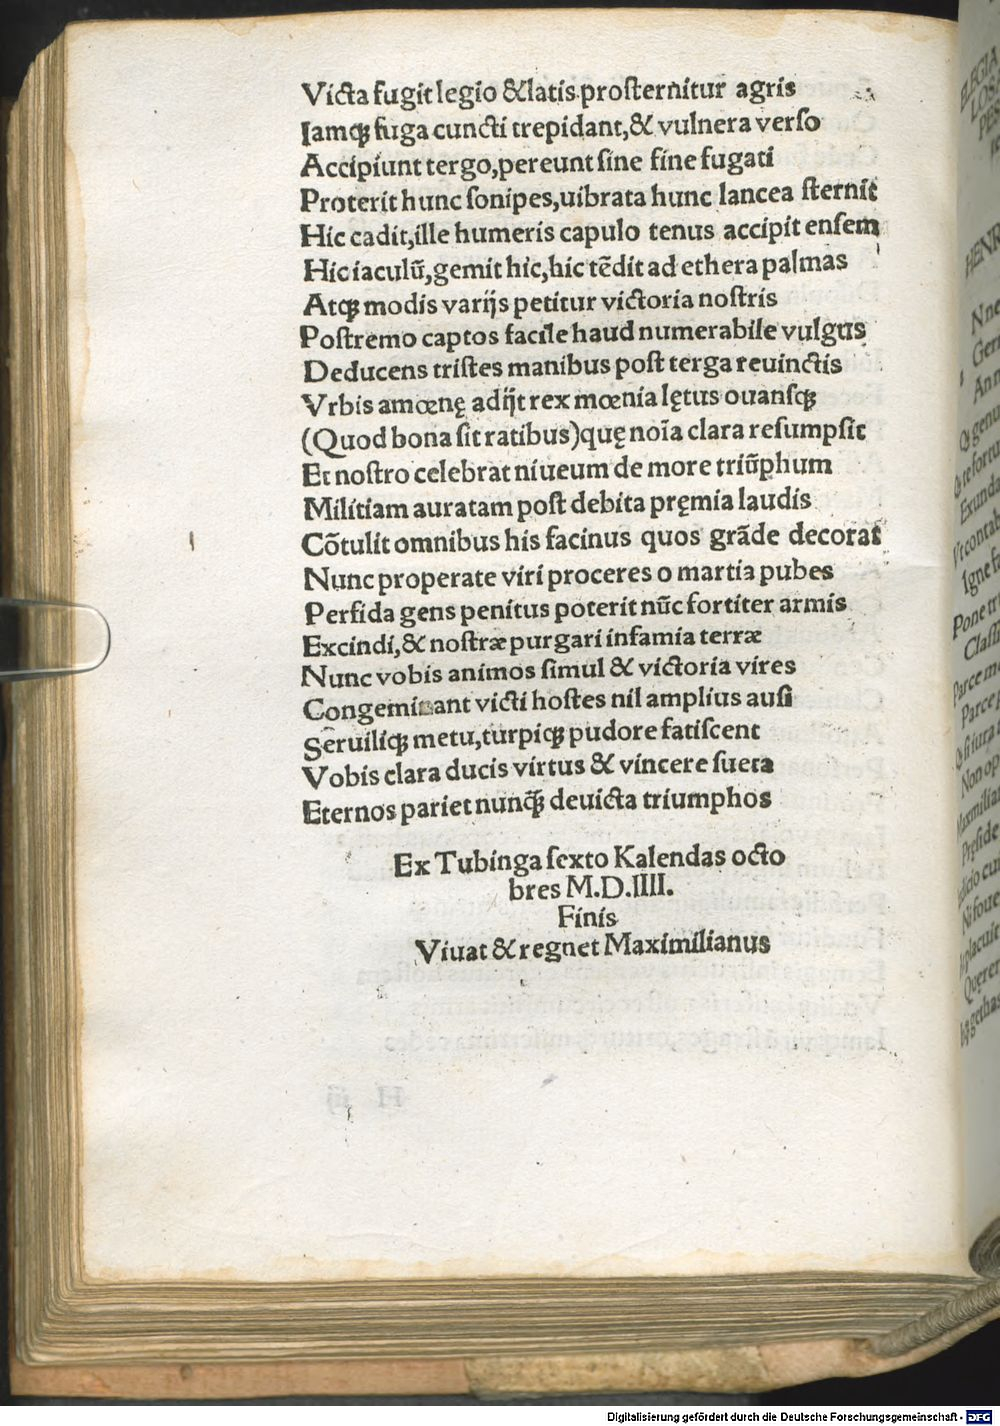 Victa fugit legio & latis prosternitur agris
Iamqꝫ fuga cuncti trepidant, & vulnera verso
Accipiunt tergo, pereunt sine fine fugati
Proterit hunc sonipes, uibrata hunc lancea sternit
Hic cadit, ille humeris capulo tenus accipit ensem
Hic iaculũ, gemit hic, hic tẽdit ad ethera palmas
Atqꝫ modis varijs petitur victoria nostris
Postremo captos facile haud numerabile vulgus
Deducens tristes manibus post terga reuinctis
Vrbis amœnę adijt rex mœnia lętus ouansqꝫ
(Quod bona sit ratibus) quę noĩa clara resumpsit
Et nostro celebrat niueum de more triũphum
Militiam auratam post debita pręmia laudis
Cõtulit omnibus his facinus quos grãde decorat
Nunc properate viri proceres o martia pubes
Perfida gens penitus poterit nũc fortiter armis
Excindi, & nostræ purgari infamia terræ
Nunc vobis animos simul & victoria vires
Congeminant victi hostes nil amplius ausi
Seruiliqꝫ metu, turpiqꝫ pudore fatiscent
Vobis clara ducis virtus & vincere sueta
Eternos pariet nunqꝫ̃ deuicta triumphos
Ex Tubinga sexto Kalendas octo
bres M.D.IIII.
Finis
Viuat & regnet Maximilianus
H iij
ELEGIA
HENR
Germ
Qꝫ genu
Exunda
Vt contra
Igne fa
Pone tr
Classi
Parce me
Parce p
Non op
Maximilian
Pręside
Ni foue
Querer
Digitalisierung gefördert durch die Deutsche Forschungsgemeinschaft - DFG